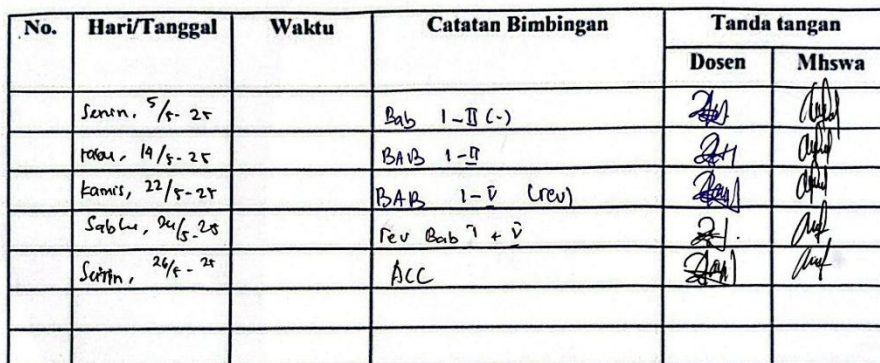 No. Hari/Tanggal Waktu Catatan Bimbingan Tanda tangan
Dosen Mhswa
Senin, 5/5-25 Bab I-II (-)
rabu, 14/5-25 BAB I-II
kamis, 22/5-25 BAB I-V (rev)
Sabtu, 24/5-25 rev Bab I + V
Senin, 26/5-25 ACC